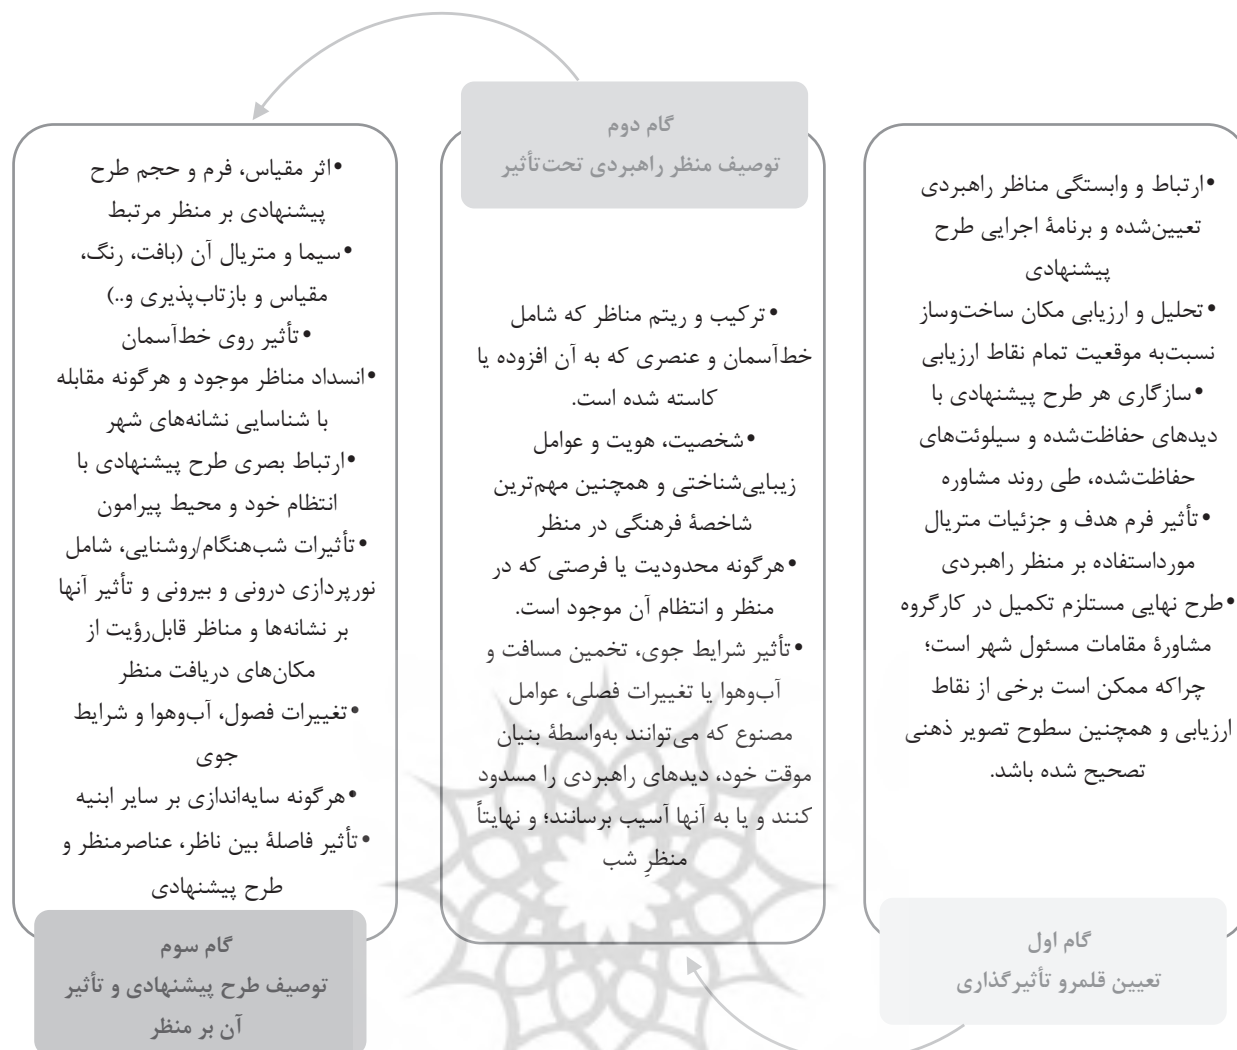 •ارتباط و وابستگی مناظر راهبردی
تعیین‌شده و برنامهٔ اجرایی طرح
پیشنهادی
•تحلیل و ارزیابی مکان ساخت‌وساز
نسبت‌به موقعیت تمام نقاط ارزیابی
•سازگاری هر طرح پیشنهادی با
دیدهای حفاظت‌شده و سیلوئت‌های
حفاظت‌شده، طی روند مشاوره
•تأثیر فرم هدف و جزئیات متریال
مورداستفاده بر منظر راهبردی
•طرح نهایی مستلزم تکمیل در کارگروه
مشاورهٔ مقامات مسئول شهر است؛
چراکه ممکن است برخی از نقاط
ارزیابی و همچنین سطوح تصویر ذهنی
تصحیح شده باشد.
گام اول
تعیین قلمرو تأثیرگذاری
گام دوم
توصیف منظر راهبردی تحت‌تأثیر
•ترکیب و ریتم مناظر که شامل
خط‌آسمان و عنصری که به آن افزوده یا
کاسته شده است.
•شخصیت، هویت و عوامل
زیبایی‌شناختی و همچنین مهم‌ترین
شاخصهٔ فرهنگی در منظر
•هرگونه محدودیت یا فرصتی که در
منظر و انتظام آن موجود است.
•تأثیر شرایط جوی، تخمین مسافت و
آب‌وهوا یا تغییرات فصلی، عوامل
مصنوع که می‌توانند به‌واسطهٔ بنیان
موقت خود، دیدهای راهبردی را مسدود
کنند و یا به آنها آسیب برسانند؛ و نهایتاً
منظرِ شب
•اثر مقیاس، فرم و حجم طرح
پیشنهادی بر منظر مرتبط
•سیما و متریال آن (بافت، رنگ،
مقیاس و بازتاب‌پذیری و..)
•تأثیر روی خط‌آسمان
•انسداد مناظر موجود و هرگونه مقابله
با شناسایی نشانه‌های شهر
•ارتباط بصری طرح پیشنهادی با
انتظام خود و محیط پیرامون
•تأثیرات شب‌هنگام/روشنایی، شامل
نورپردازی درونی و بیرونی و تأثیر آنها
بر نشانه‌ها و مناظر قابل‌رؤیت از
مکان‌های دریافت منظر
•تغییرات فصول، آب‌وهوا و شرایط
جوی
•هرگونه سایه‌اندازی بر سایر ابنیه
•تأثیر فاصلهٔ بین ناظر، عناصرمنظر و
طرح پیشنهادی
گام سوم
توصیف طرح پیشنهادی و تأثیر
آن بر منظر